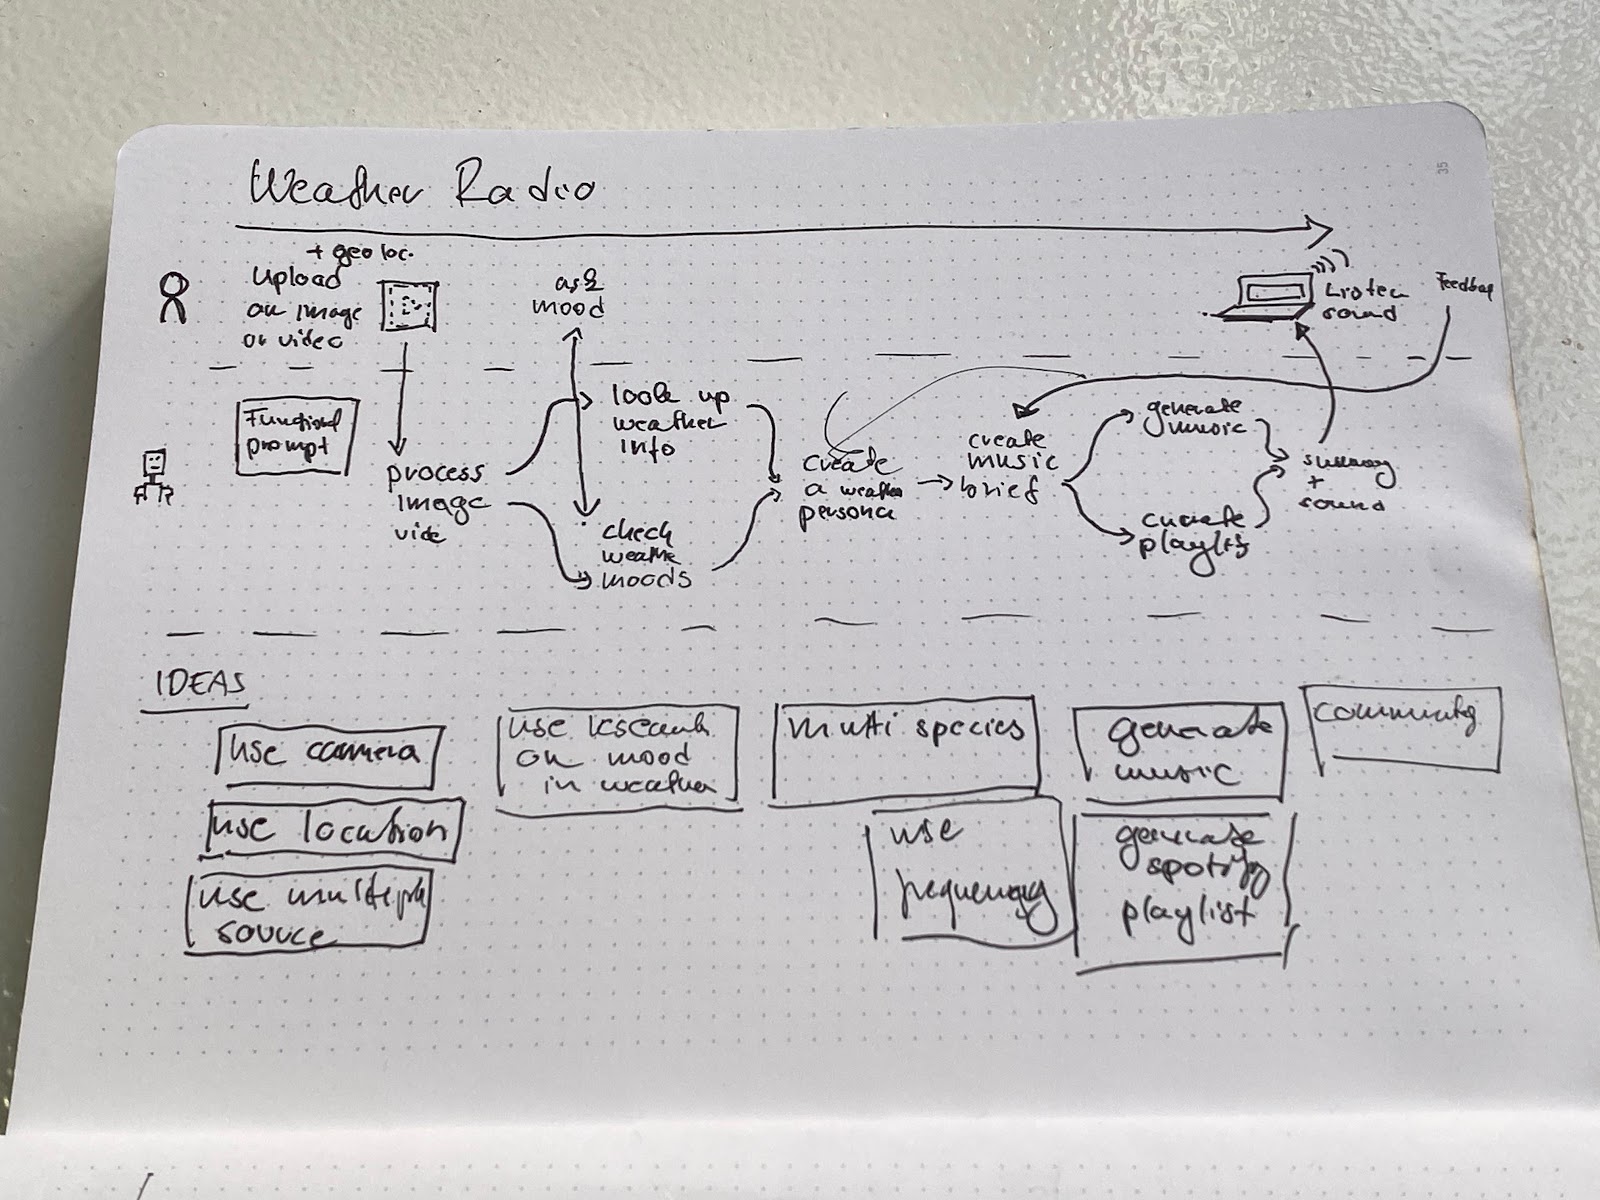 35
Weather Radio
+ geo loc.
upload
an image
or video
ask
mood
Listen
sound
Feedback
Functional
prompt
process
image
vide
look up
weather
info
check
weathe
moods
create
a weather
persona
create
music
brief
generate
music
curate
playlist
summary
+
sound
IDEAS
use camera
use location
use multiple
source
use research
on mood
in weather
multi species
use
frequency
generate
music
generate
spotify
playlist
community